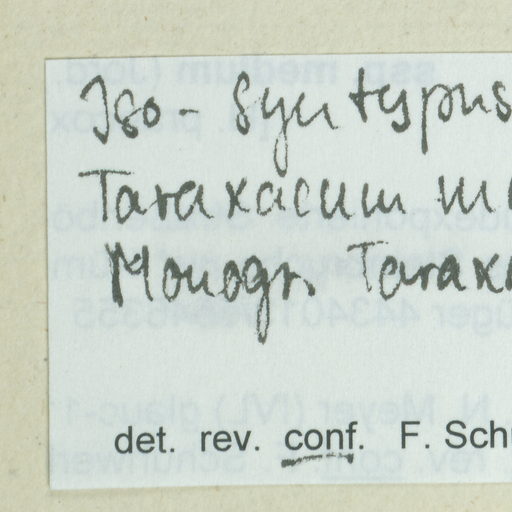 Iso-Syntypus
Taraxacum
Monogr. Tarax
det. rev. conf. F. Sch